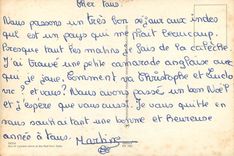 Cher tous.
Nous passons un très bon séjour aux indes
qui est un pays qui me plait beaucoup.
Presque tout les matins je fais de la calèche
J'ai trouvé une petite camarade anglaise avec
qui je joue. Comment va Christophe et Ludo
vic? et vous? Nous avons passé un bon Noël
et j'espère que vous aussi. Je vous quitte en
vous souhaitant une bonne et heureuse
année à tous.
Martine